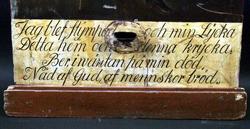 Jag blef lÿmpad och min Lycka
Detta hem och denna krycka,
Ber invântan på min död,
Nåd af Gud, af menniskor bröd.